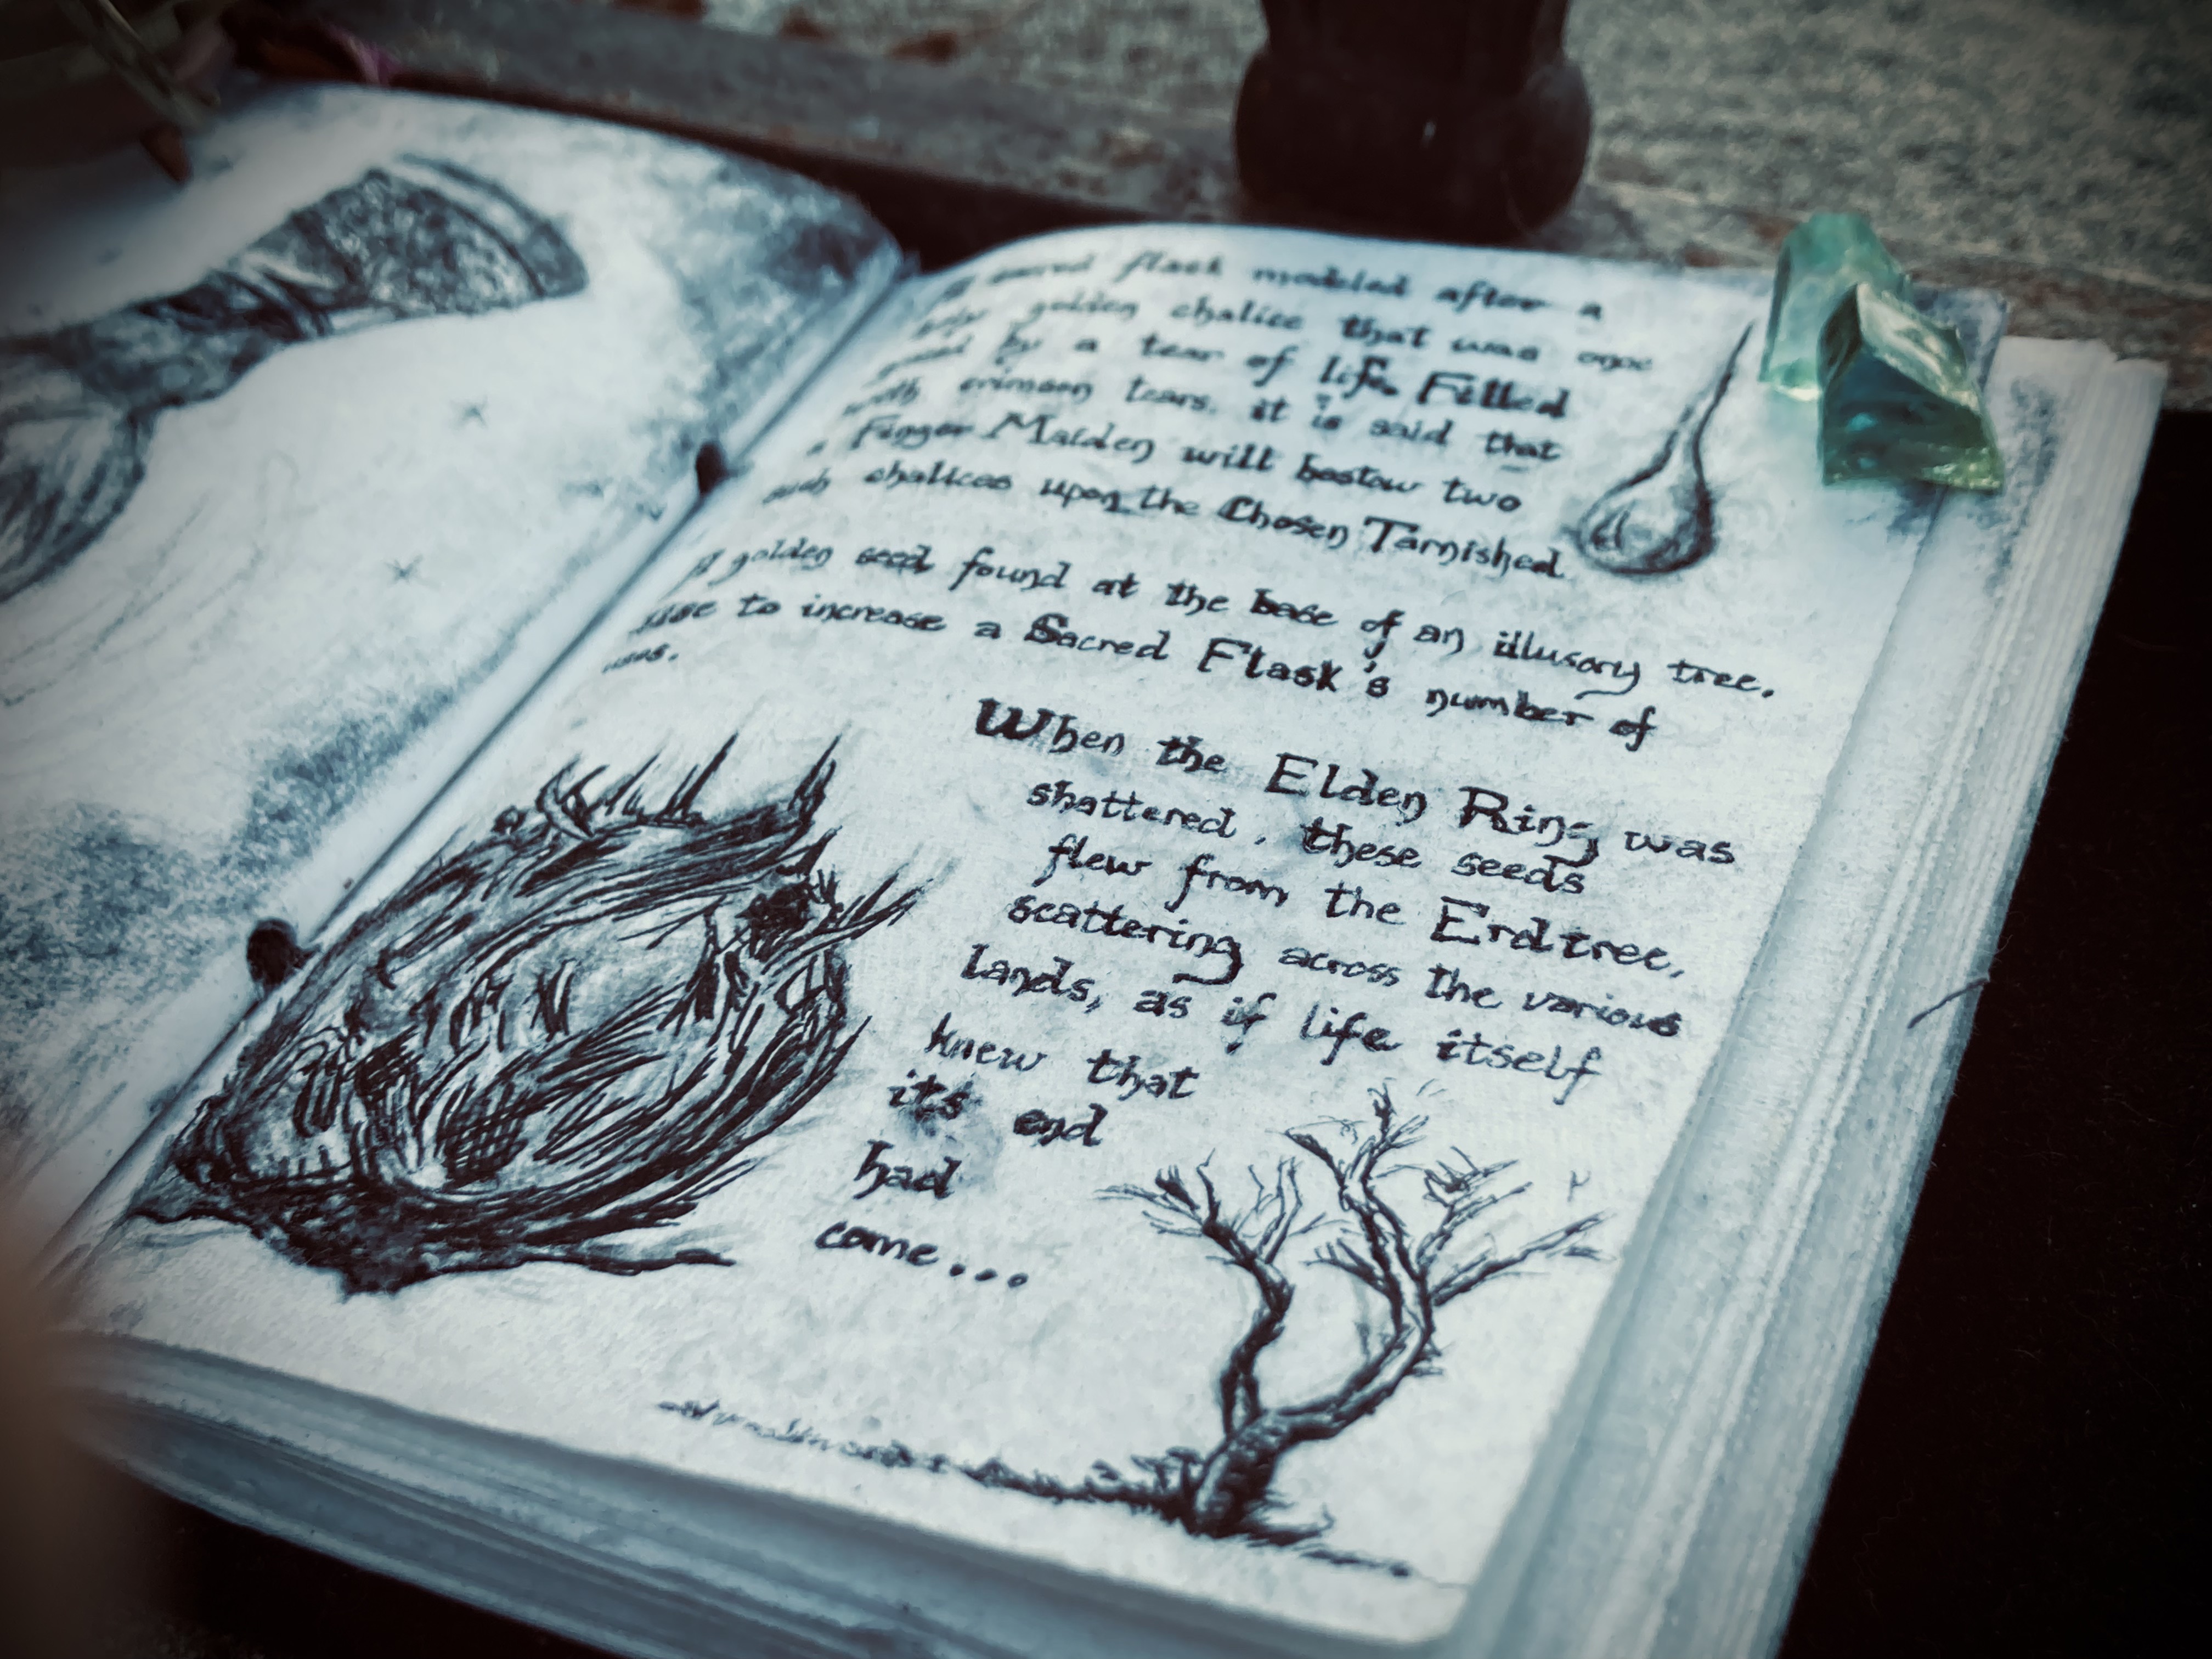 A sacred flask modeled after a
holy golden chalice that was once
graced by a tear of life. Filled
with crimson tears, it is said that
a Finger Maiden will bestow two
such chalices upon the Chosen Tarnished.
A golden seed found at the base of an illusory tree.
Use to increase a Sacred Flask's number of
uses.
When the Elden Ring was
shattered, these seeds
flew from the Erdtree,
scattering across the various
lands, as if life itself
knew that
its end
had
come...